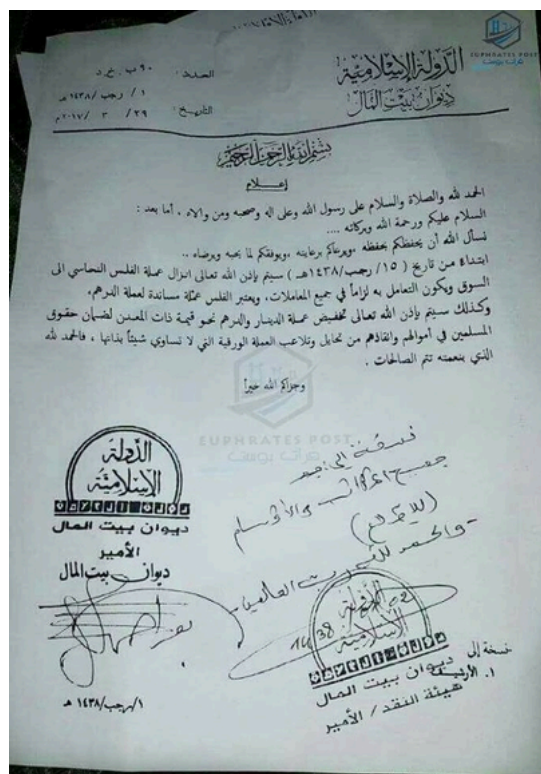 EUPHRATES POST
فرات بوست
الدولة الإسلامية
ديوان بيت المال
العدد: ٩٠ ب. خ. د
١ / رجب / ١٤٣٨هـ
التاريخ: ٢٩ / ٣ / ٢٠١٧م
بسم الله الرحمن الرحيم
إعلام
الحمد لله والصلاة والسلام على رسول الله وعلى اله وصحبه ومن والاه ، أما بعد :
السلام عليكم ورحمة الله وبركاته ....
نسأل الله أن يحفظكم بحفظه ،ويرعاكم برعايته ،ويوفقكم لما يحبه ويرضاه ..
ابتداءً من تاريخ ( ١٥/ رجب/١٤٣٨هـ ) سيتم بإذن الله تعالى انزال عملة الفلس النحاسي الى
السوق ويكون التعامل به لزاماً في جميع المعاملات، ويعتبر الفلس عملة مساندة لعملة الدرهم.
وكذلك سيتم بإذن الله تعالى تخفيض عملة الدينار والدرهم نحو قيمة ذات المعدن لضمان حقوق
المسلمين في أموالهم وانقاذهم من تحايل وتلاعب العملة الورقية التي لا تساوي شيئاً بذاتها ، فالحمد لله
الذي بنعمته تتم الصالحات .
وجزاكم الله خيراً
EUPHRATES POST
فرات بوست
نسخة إلى
جميع المكاتب والأقسام
(للإطلاع)
والحمد لله رب العالمين
الدولة
الإسلامية
ديوان بيت المال
الأمير
ديوان بيت المال
١/رجب/١٤٣٨ هـ
1438
الدولة
الإسلامية
ديوان بيت المال
هيئة النقد / الأمير
نسخة إلى
١. الأرشيف